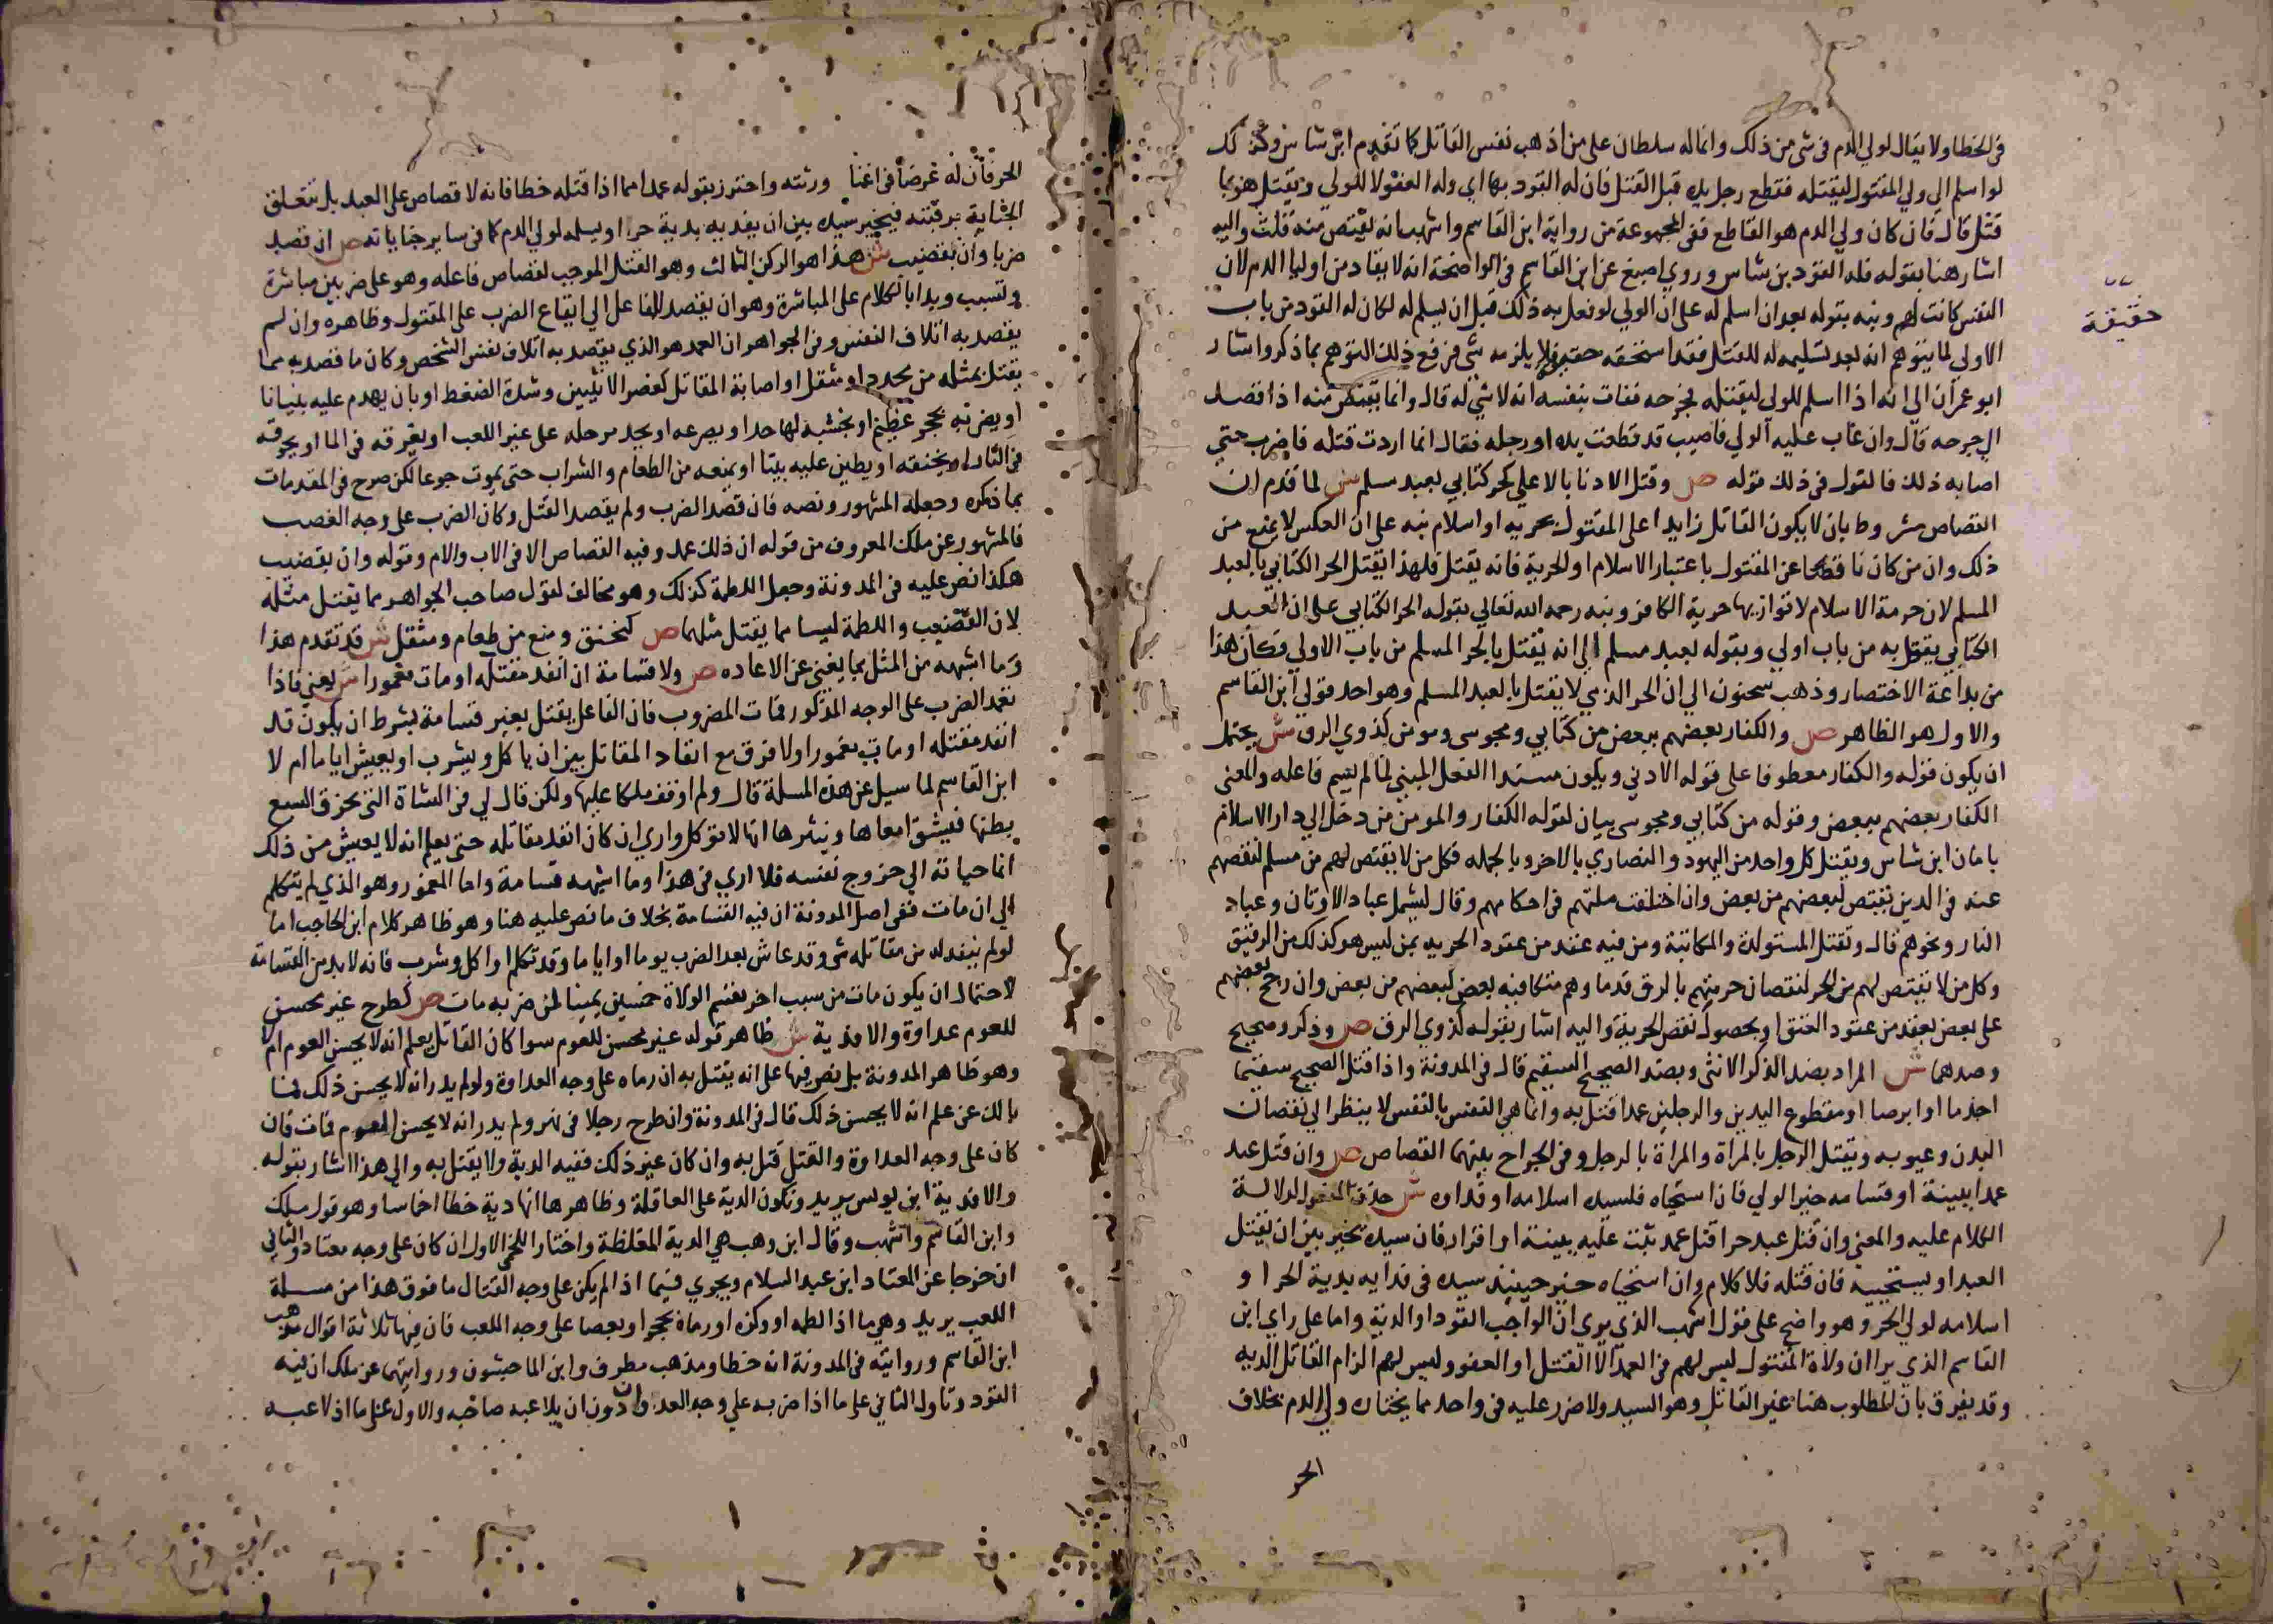 في الخطا ولا يقال لولي الدم في شي من ذلك وانما له سلطان على من اذهب نفس القاتل كما تقدم ابن شاس وكذلك
لو اسلم الى ولي المقتول ليقتله فقطع رجل يده قبل القتل فان له القود بها اي وله العفو لا للولي ويقتل هو بما
قتل قال فان كان ولي الدم هو القاطع ففي المجموعة من رواية ابن القاسم واشهب انه يقتص منه قلت واليه
اشار هنا بقوله فله القود بن شاس وروي اصبغ عن ابن القاسم في الواضحة انه لا يقاد من اوليا الدم لان
النفس كانت لهم ونبه بقوله بعد ان اسلم له على ان الولي لو فعل به ذلك قبل ان يسلم له لكان له القود من باب
حقيقة
الاولي لما يتوهم انه بعد تسليمه له للقتل فقد استحقه فلا يلزمه شي فرفع ذلك التوهم بما ذكر واشار
ابو عمران الي انه اذا اسلم للولي ليقتله فجرحه ففات بنفسه انه لا شي له قال وانما يقتص منه اذا قصد
الي جرحه قال وان غاب عليه الولي فاصيب قد قطعت يده او رجله فقال انما اردت قتله فاضرب حتي
اصابه ذلك فالقول في ذلك قوله ص وقتل الادنا بالاعلي كحر كتابي بعبد مسلم ش لما قدم ان
القصاص مشروط بان لا يكون القاتل زايدا على المقتول بحريه او اسلام نبه على ان العكس لا يمنع من
ذلك وان من كان ناقصا عن المقتول باعتبار الاسلام او الحرية فانه يقتل فلهذا يقتل الحر الكتابي بالعبد
المسلم لان حرمة الاسلام لا توازيها حرية الكافر ونبه رحمه الله تعالي بقوله الحر الكتابي على ان العبد
الكتابي يقتل به من باب اولي وبقوله بعبد مسلم الي انه يقتل بالحر المسلم من باب الاولي فكان هذا
من بداعة الاختصار وذهب سحنون الي ان الحر الذمي لا يقتل بالعبد المسلم وهو احد قولي ابن القاسم
والاول هو الظاهر ص والكفار بعضهم ببعض من كتابي ومجوسي ومومن كذوي الرق ش يحتمل
ان يكون قوله والكفار معطوفا على قوله الادني ويكون مسندا الفعل المبني لما لم يسم فاعله والمعنى
الكفار بعضهم ببعض وقوله من كتابي ومجوسي بيان لقوله الكفار والمومن من دخل الي دار الاسلام
بامان ابن شاس ويقتل كل واحد من اليهود والنصاري بالاخر وبالجمله فكل من لا يقتص لهم من مسلم لنقصهم
عنه في الدين يقتص لبعضهم من بعض وان اختلفت ملتهم في احكامهم وقال ليشمل عباد الاوثان وعباد
النار ونحوهم قال وتقتل المستولدة والمكاتبة ومن فيه عقد من عقود الحريه بمن ليس هو كذلك من الرقيق
وكل من لا يقتص لهم من الحر لنقصان حريتهم بالرق قدما وهم متكافيه بعض لبعضهم من بعض وان رجح بعضهم
على بعض بعقد من عقود العتق او بحصول نقص الحرية واليه اشار بقوله كذوي الرق ص وذكر وصحيح
وضدهما ش المراد بضد الذكر الانثى وبضد الصحيح السقيم قال في المدونة واذا قتل الصحيح سقيما
اجذما او ابرصا او مقطوع اليدين والرجلين عمدا قتل به وانما هي النفس بالنفس لا ينظر الي نقصان
البدن وعيوبه ويقتل الرجل بالمراة والمراة بالرجل وفي الجراح بينهما القصاص ص وان قتل عبد
عمدا ببينة او قسامه خير الولي فان استحياه فلسيده اسلامه او فداوه ش حذف المفعول لدلالة
الكلام عليه والمعنى وان قتل عبد حرا قتل عمد ثبت عليه ببينة او اقرار فان سيده تخير بين ان يقتل
العبد او يستحييه فان قتله فلا كلام وان استحياه خير حينيذ سيده في فدايه بدية الحر او
اسلامه لولي الحر وهو واضح على قول اشهب الذي يري ان الواجب القود او الدية واما على راي ابن
القاسم الذي يرا ان ولاة المقتول ليس لهم في العمد الا القتل او العفو وليس لهم الزام القاتل الديه
وقد يفرق بان المطلوب هنا غير القاتل وهو السيد ولا ضرر عليه في واحد مما يختاره ولي الدم بخلاف
الحر
الحر فان له غرضا في اغنا ورثته واحترز بقوله عمدا مما اذا قتله خطا فانه لا قصاص على العبد بل تتعلق
الجناية برقبته فيخير سيده بين ان يفديه بدية حر او يسلمه لولي الدم كما في ساير جناياته ص ان قصد
ضربا وان بقضيب ش هذا هو الركن الثالث وهو القتل الموجب لقصاص فاعله وهو على ضربين مباشرة
وتسبب وبدا بالكلام على المباشرة وهو ان يقصد الفاعل الي ايقاع الضرب على المقتول وظاهره وان لم
يقصد به اتلاف النفس وفي الجواهر ان العمد هو الذي يقصد به اتلاف نفس الشخص وكان ما قصد به مما
يقتل بمثله من محدد او مثقل او اصابة المقاتل كعصر الانثيين وشدة الضغط او بان يهدم عليه بنيانا
او يضربه بحجر عظيم او بخشبه لها حد او يصرعه او يجد برجله على غير اللعب او يغرقه في الما او يحرقه
في النار او يخنقه او يطين عليه بيتا او يمنعه من الطعام والشراب حتى يموت جوعا لكن صرح في المقدمات
بما ذكره وجعله المشهور ونصه فان قصد الضرب ولم يقصد القتل وكان الضرب على وجه الغضب
فالمشهور عن ملك المعروف من قوله ان ذلك عمد وفيه القصاص الا في الاب والام وقوله وان بقضيب
هكذا نص عليه في المدونة وجعل اللطمة كذلك وهو مخالف لقول صاحب الجواهر مما يقتل مثله
لان القضيب واللطمة ليسا مما يقتل مثلهما ص كخنق ومنع من طعام ومثقل ش قد تقدم هذا
وما اشبهه من المثل بما يغني عن الاعاده ص ولا قسامة ان انفد مقتله او مات مغمورا ش يعني فاذا
تعمد الضرب على الوجه المذكور فمات المضروب فان الفاعل يقتل بغير قسامة بشرط ان يكون قد
انفد مقتله او مات مغمورا ولا فرق مع انفاد المقاتل بين ان ياكل ويشرب او يعيش اياما ام لا
ابن القاسم لما سيل عن هذه المسلة قال ولم اوقف ملكا عليها ولكن قال لي في الشاة التى يخرق السبع
بطنها فيشق امعاها وينثرها انها لا توكل واري ان كان انفد مقاتله حتى يعلم انه لا يعيش من ذلك
انما حياته الي خروج نفسه فلا اري في هذا وما اشبهه قسامة واما المغمور وهو الذي لم يتكلم
الي ان مات ففي اصل المدونة ان فيه القسامة بخلاف ما نص عليه هنا وهو ظاهر كلام ابن الحاجب اما
لو لم ينفد له من مقاتله شي وقد عاش بعد الضرب يوما او اياما وقد تكلم او اكل وشرب فانه لا بد من القسامة
لاحتمال ان يكون مات من سبب اخر يقسم الولاة خمسين يمينا لمن ضربه مات ص كطرح غير محسن
للعوم عداوة والا فدية ش ظاهر قوله غير محسن للعوم سوا كان القاتل يعلم انه لا يحسن العوم ام لا
وهو ظاهر المدونة بل نص فيها على انه يقتل به ان رماه على وجه العداوة ولو لم يدر انه لا يحسن ذلك فما
بالك عن علم انه لا يحسن ذلك قال في المدونة وان طرح رجلا في نهر ولم يدر انه لا يحسن العوم فمات فان
كان على وجه العداوة والقتل قتل به وان كان غير ذلك ففيه الدية ولا يقتل به والي هذا اشار بقوله
والا فدية ابن يونس يريد وتكون الدية على العاقلة وظاهرها انها دية خطا اخماسا وهو قول ملك
وابن القاسم واشهب وقال ابن وهب هي الدية المغلظة واختار اللخمي الاول ان كان على وجه معتاد والثاني
ان خرجا عن المعتاد ابن عبد السلام ويجري فيما اذا لم يكن على وجه القتال ما فوق هذا من مسلة
اللعب يريد وهي ما اذا لطمه او وكزه او رماه بحجر او بعصا على وجه اللعب فان فيها ثلاثة اقوال مذهب
ابن القاسم وروايته في المدونة انه خطا ومذهب مطرف وابن الماجشون وروايتهما عن ملك ان فيه
القود وتاول الثاني على ما اذا ضربه علي وجه العمد دون ان يلاعبه صاحبه والاول على ما اذا لاعبه